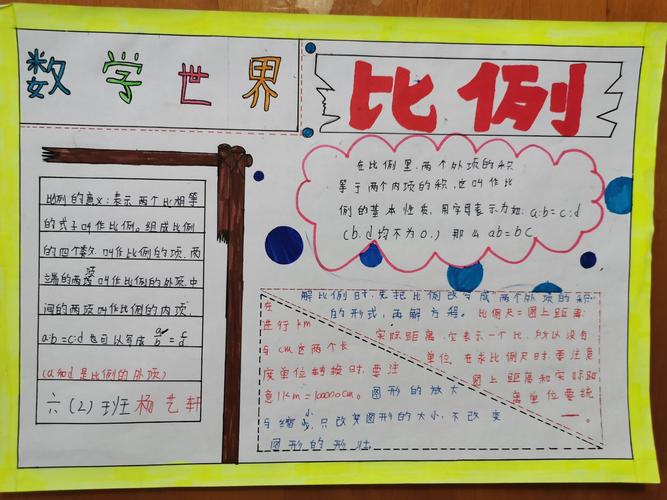 数学世界
比例
比例的意义:表示两个比相等
的式子叫作比例。组成比例
的四个数.叫作比例的项,两
端的两项叫作比例的外项.中
间的两项叫作比例的内项.
a:b=c:d也可以写成a/b=c/d
(a和d是比例的外项)
六(2)班杨艺轩
在比例里,两个外项的积
等于两个内项的积,这叫作比
例的基本性质,用字母表示为如:a:b=c:d
(b.d均不为0.)那么ab=bc
解比例时,先把比例改写成两个外项的积
的形式,再解方程。比例尺=图上距离:
实际距离,它表示一个比,所以没有
单位,在求比例尺时,要注意
图上距离和实际距
离单位要统
一。
在
进行km
与cm这两个长
度单位转换时,要注
意1km=100000cm。图形的放大
与缩小,只改变图形的大小,不改变
图形的形状.